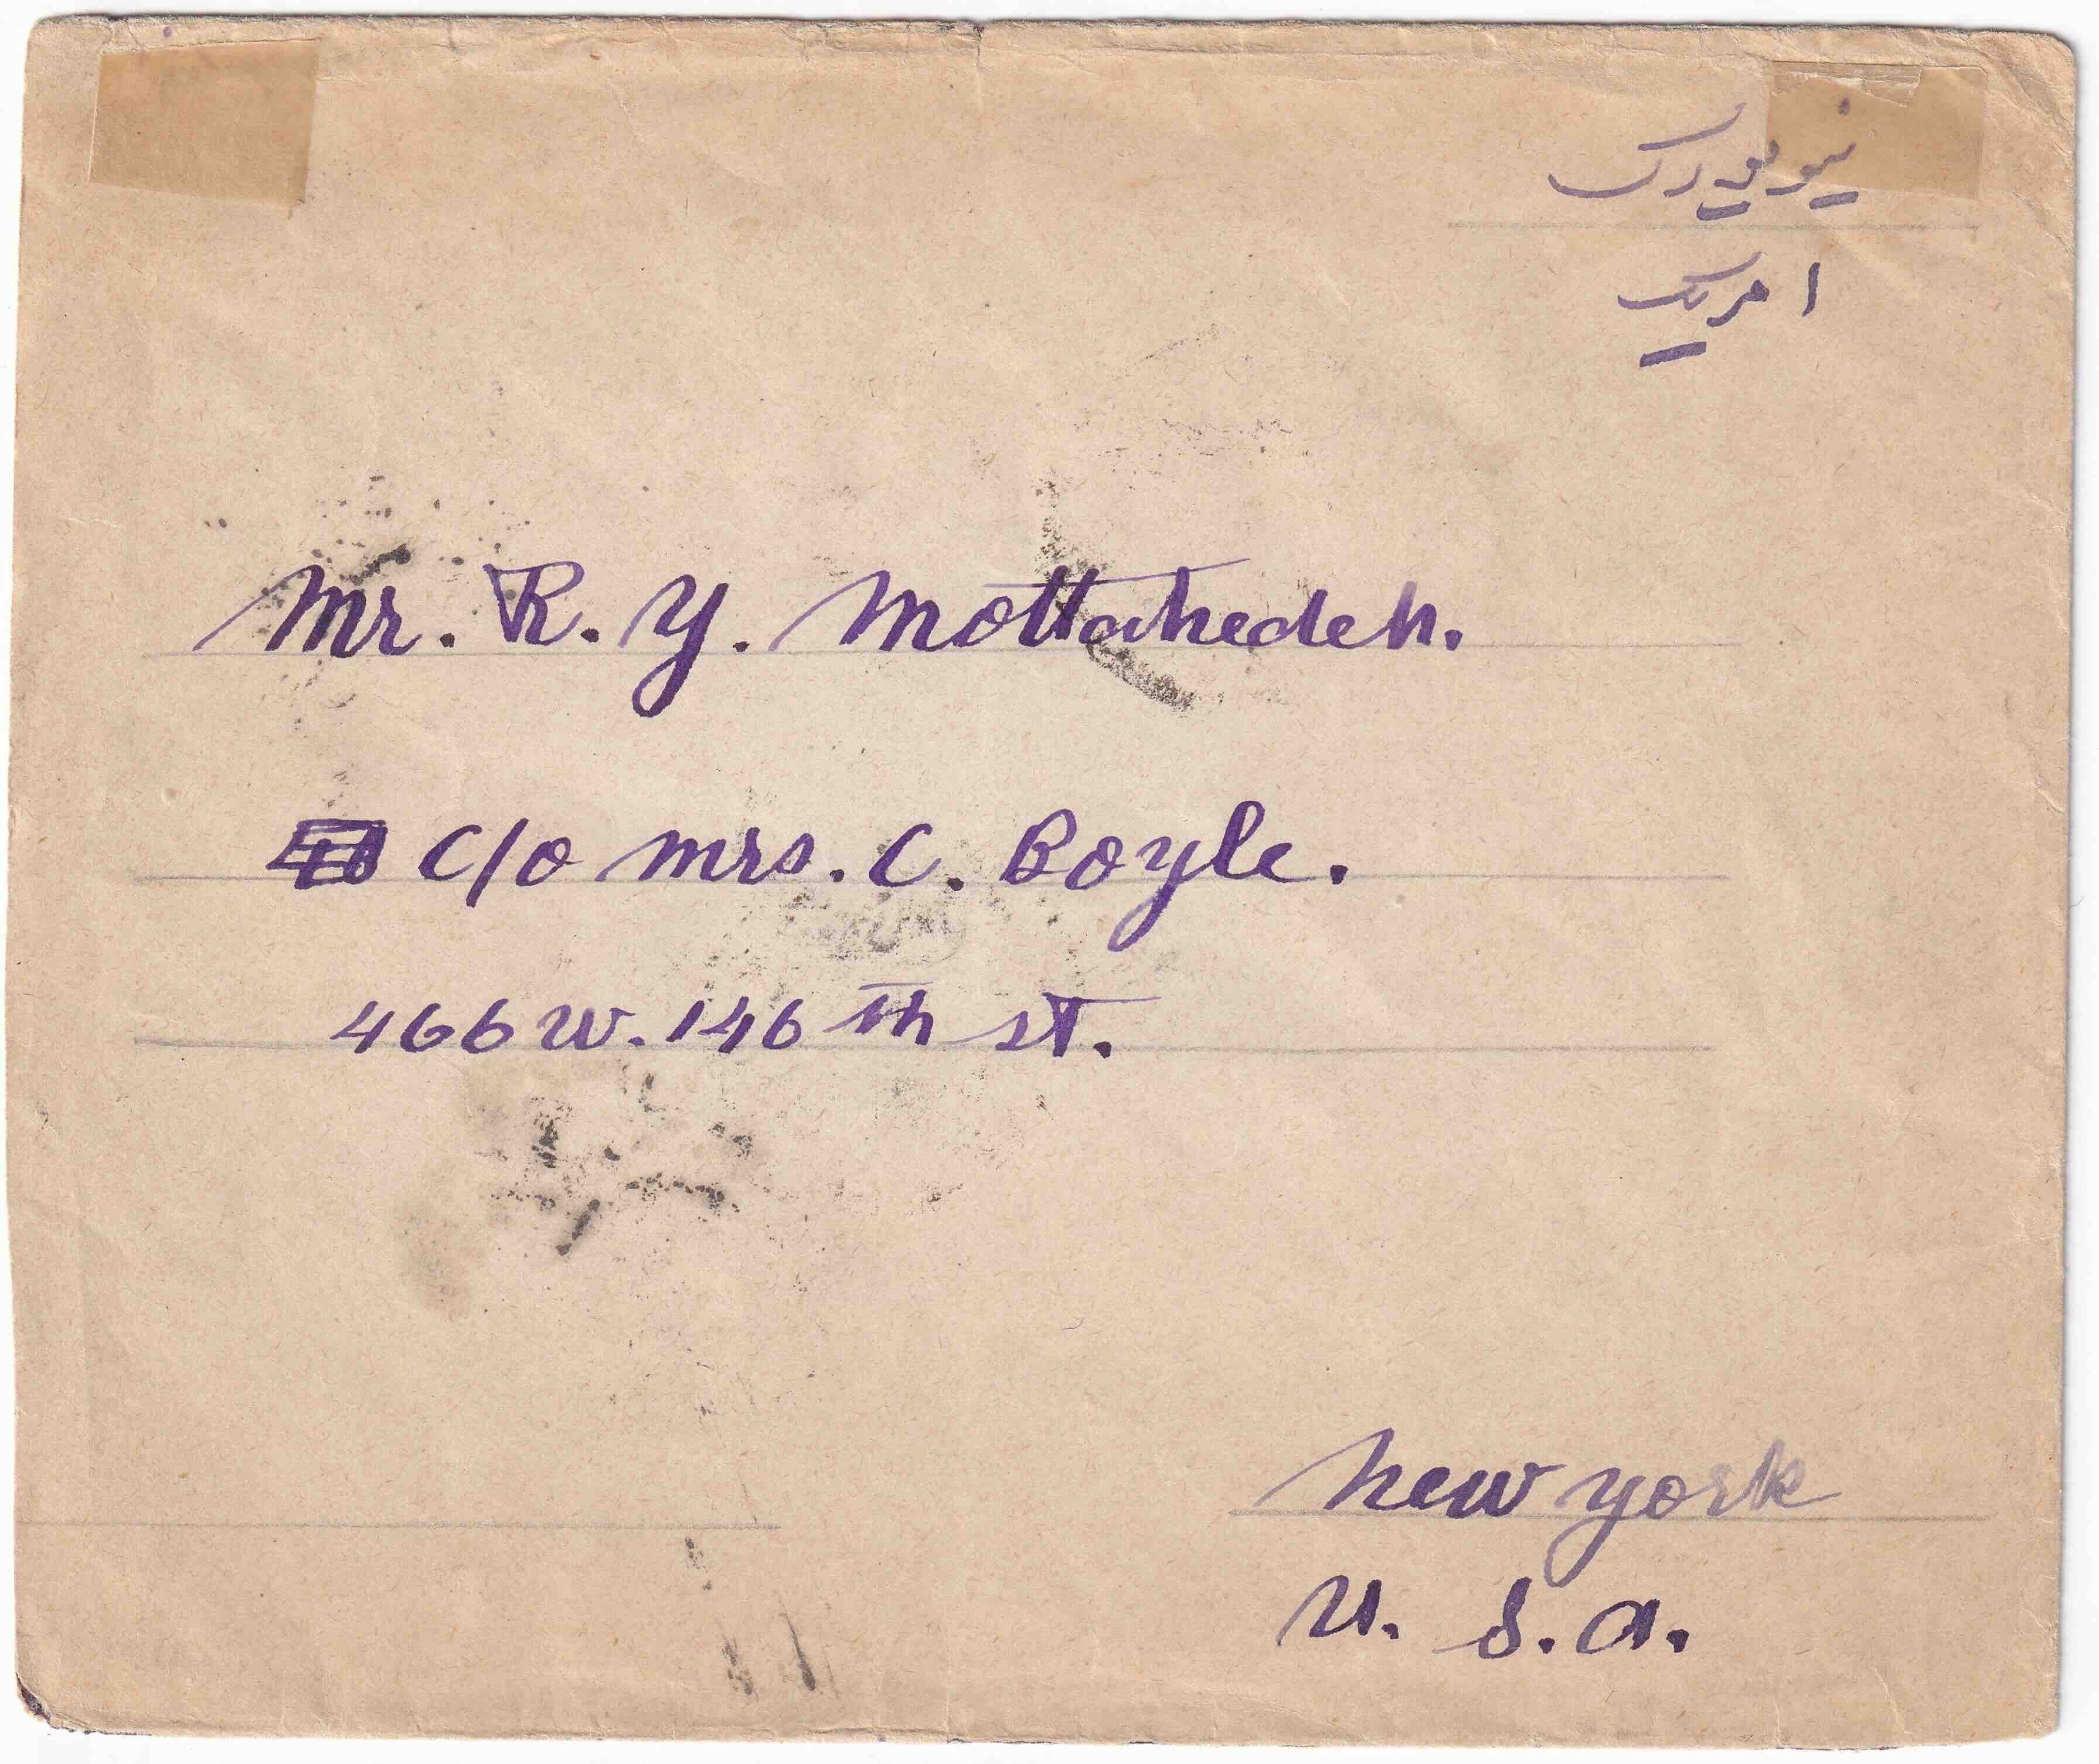 نیویورک
امریک
Mr. R. Y. Mottahedeh.
c/o Mrs. C. Boyle.
466 W. 146 th st.
New York
U. S. A.